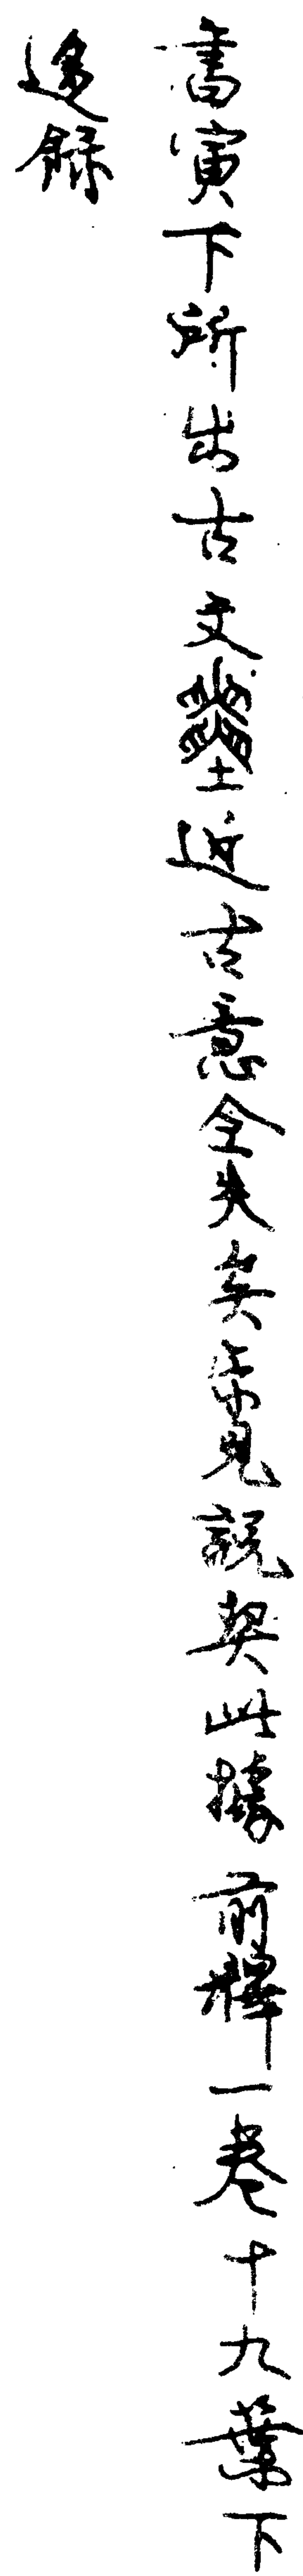 書寅下所出古文近古意全失矣亦見說契此據前釋一卷十九葉下
迻錄